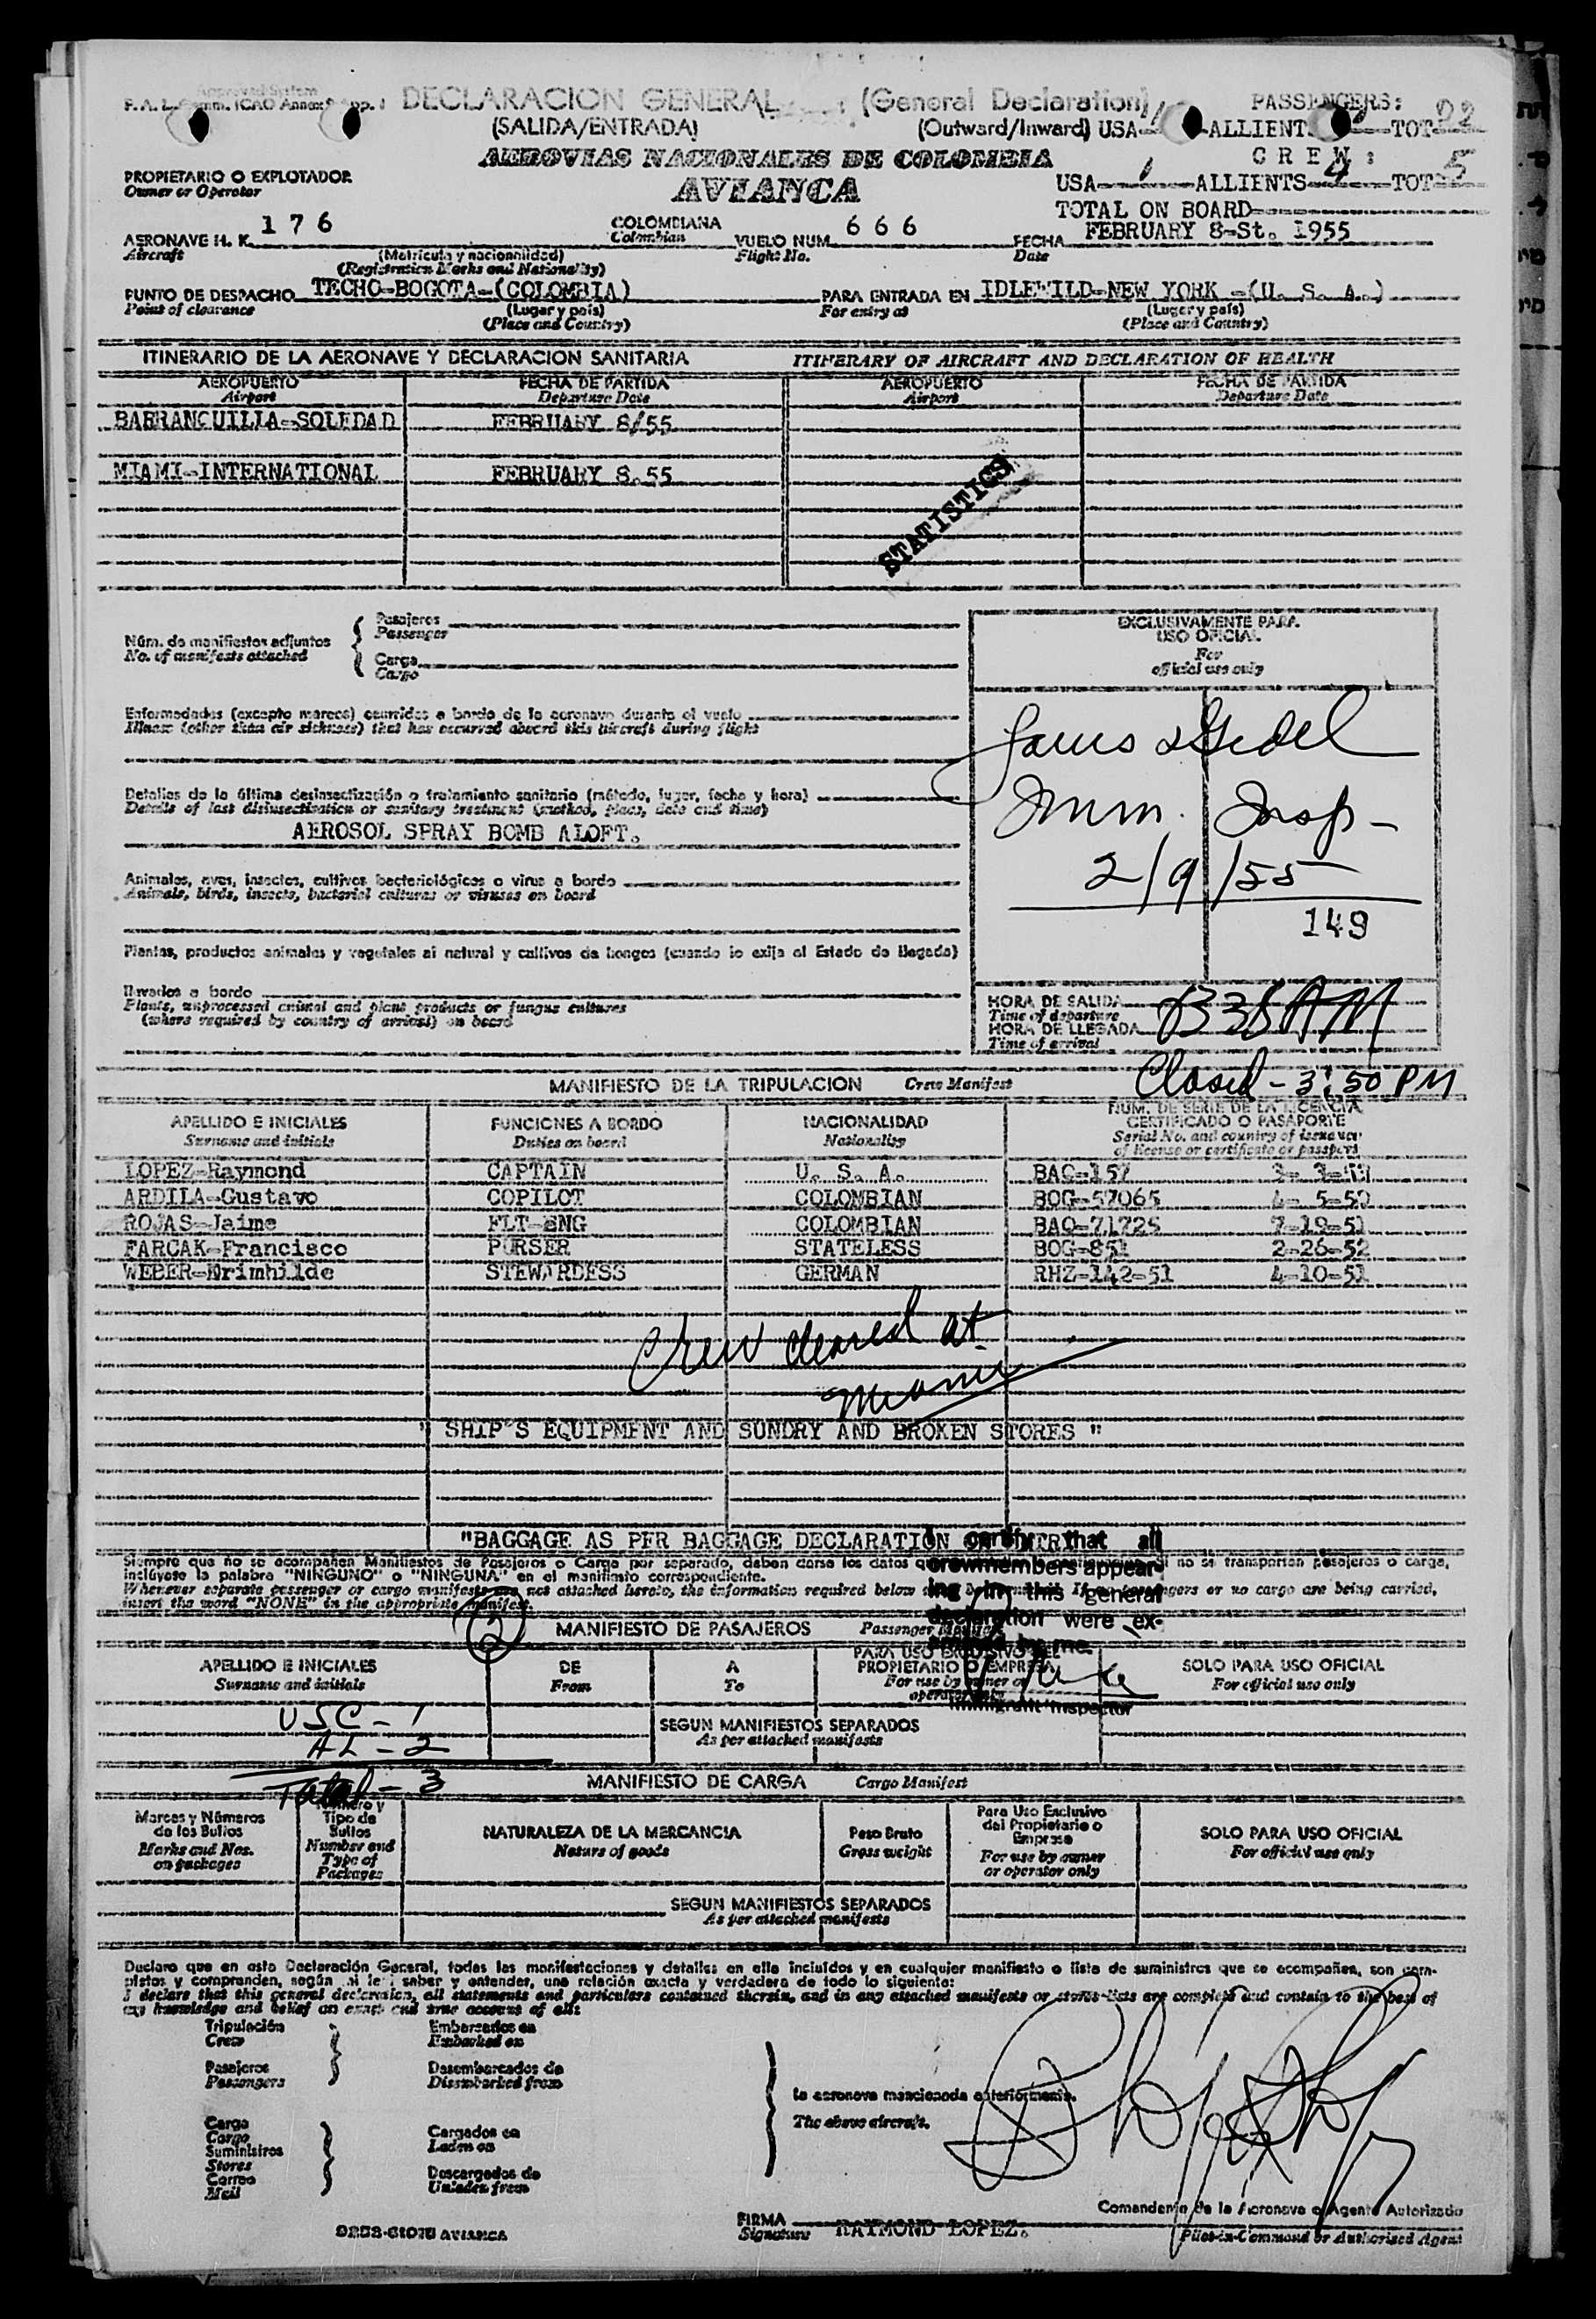 Approved System
F. A. L. Comm. ICAO Annex 9 App. 1 DECLARACION GENERAL (General Declaration) PASSENGERS:
(SALIDA/ENTRADA) (Outward/Inward) USA ALLIENT TOT 22
AEROVIAS NACIONALES DE COLOMBIA CREW:
PROPIETARIO O EXPLOTADOR
Owner or Operator
AVIANCA USA 1 ALLIENTS 4 TOT 5
TOTAL ON BOARD
AERONAVE H. K. 176 COLOMBIANA VUELO NUM 666 FECHA FEBRUARY 8-St. 1955
Aircraft Colombian Flight No. Date
(Matricula y nacionalidad)
(Registration Marks and Nationality)
PUNTO DE DESPACHO TECHO-BOGOTA-(COLOMBIA) PARA ENTRADA EN IDLEWILD-NEW YORK -(U. S. A.)
Point of clearance (Lugar y país) For entry at (Lugar y país)
(Place and Country) (Place and Country)
ITINERARIO DE LA AERONAVE Y DECLARACION SANITARIA ITINERARY OF AIRCRAFT AND DECLARATION OF HEALTH
AEROPUERTO FECHA DE PARTIDA AEROPUERTO FECHA DE PARTIDA
Airport Departure Date Airport Departure Date
BARRANQUILLA-SOLEDAD FEBRUARY 8/55
MIAMI-INTERNATIONAL FEBRUARY 8.55
STATISTICS
Núm. de manifiestos adjuntos
No. of manifests attached
Pasajeros
Passenger
Carga
Cargo
EXCLUSIVAMENTE PARA
USO OFICIAL
For
official use only
Enfermedades (excepto mareos) ocurridas a bordo de la aeronave durante el vuelo
Illness (other than air sickness) that has occurred aboard this aircraft during flight
Imm. Insp-
2/9/55
149
Detalles de la última desinsectización o tratamiento sanitario (método, lugar, fecha y hora)
Details of last disinsectisation or sanitary treatment (method, place, date and time)
AEROSOL SPRAY BOMB ALOFT.
Animales, aves, insectos, cultivos bacteriológicos o virus a bordo
Animals, birds, insects, bacterial cultures or viruses on board
Plantas, productos animales y vegetales al natural y cultivos de hongos (cuando lo exija el Estado de llegada)
llevados a bordo
Plants, unprocessed animal and plant products or fungus cultures
(where required by country of arrival) on board
HORA DE SALIDA
Time of departure
HORA DE LLEGADA
Time of arrival
Closed - 3:50 PM
MANIFIESTO DE LA TRIPULACION Crew Manifest
APELLIDO E INICIALES FUNCIONES A BORDO NACIONALIDAD NUM. DE SERIE DE LA LICENCIA CERTIFICADO O PASAPORTE
Surname and initials Duties on board Nationality Serial No. and country of issuance of license or certificate or passport
LOPEZ-Raymond CAPTAIN U. S. A. BAQ-157
ARDILA-Gustavo COPILOT COLOMBIAN BOG-57065 4- 5-50
ROJAS-Jaime FLT-ENG COLOMBIAN BAQ-71725 7-19-51
FARCAK-Francisco PURSER STATELESS BOG-851 2-26-52
WEBER-Krimhilde STEWARDESS GERMAN RHZ-142-51 4-10-51
Crew cleared at
Miami
" SHIP'S EQUIPMENT AND SUNDRY AND BROKEN STORES "
"BAGGAGE AS PER BAGGAGE DECLARATION
certify that all
crewmembers appear-
ing in this general
declaration were ex-
amined by me.
Immigrant Inspector
Siempre que no se acompañen Manifiestos de Pasajeros o Carga por separado, deben darse los datos no se transportan pasajeros o carga,
inclúyese la palabra "NINGUNO" o "NINGUNA" en el manifiesto correspondiente.
Whenever separate passenger or cargo manifests are not attached hereto, the information required below If no passengers or no cargo are being carried,
insert the word "NONE" in the appropriate manifest.
2
MANIFIESTO DE PASAJEROS Passenger Manifest
APELLIDO E INICIALES DE A PARA USO EXCLUSIVO DEL PROPIETARIO O EMPRESA SOLO PARA USO OFICIAL
Surname and initials From To For use by owner or operator only For official use only
USC - 1
AL - 2
Total - 3
SEGUN MANIFIESTOS SEPARADOS
As per attached manifests
MANIFIESTO DE CARGA Cargo Manifest
Marcas y Números de los Bultos
Marks and Nos. on packages
Número y Tipo de Bultos
Number and Type of Packages
NATURALEZA DE LA MERCANCIA
Nature of goods
Peso Bruto
Gross weight
Para Uso Exclusivo del Propietario o Empresa
For use by owner or operator only
SOLO PARA USO OFICIAL
For official use only
SEGUN MANIFIESTOS SEPARADOS
As per attached manifests
Declaro que en esta Declaración General, todas las manifestaciones y detalles en ella incluídos y en cualquier manifiesto o lista de suministros que se acompañen, son com-
pletos y comprenden, según mi leal saber y entender, una relación exacta y verdadera de todo lo siguiente:
I declare that this general declaration, all statements and particulars contained therein, and in any attached manifests or stores-lists are complete and contain to the best of
my knowledge and belief an exact and true account of all:
Tripulación Embarcados en
Crew Embarked on
Pasajeros Desembarcados de
Passengers Disembarked from
la aeronave mencionada anteriormente.
The above aircraft.
Carga
Cargo
Suministros
Stores
Correo
Mail
Cargados en
Laden on
Descargados de
Unladen from
Comandante de la Aeronave o Agente Autorizado
FIRMA RAYMOND LOPEZ.
Signature Pilot-in-Command or Authorised Agent
AVIANCA